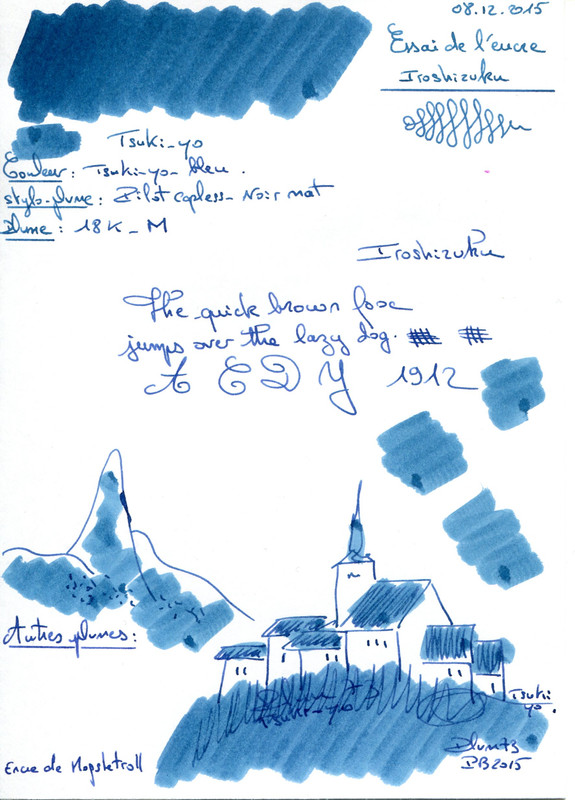 08.12.2015
Essai de l'encre
Iroshizuku
Tsuki-yo
Couleur : Tsuki-yo - bleu.
stylo-plume : Pilot capless - Noir mat
Plume : 18K - M
Iroshizuku
The quick brown foxe
jumps over the lazy dog.
A E D Y 1912
Autres plumes :
Tsuki-yo
Tsuki
yo.
Plum73
PB2015
Encre de Mopstetroll